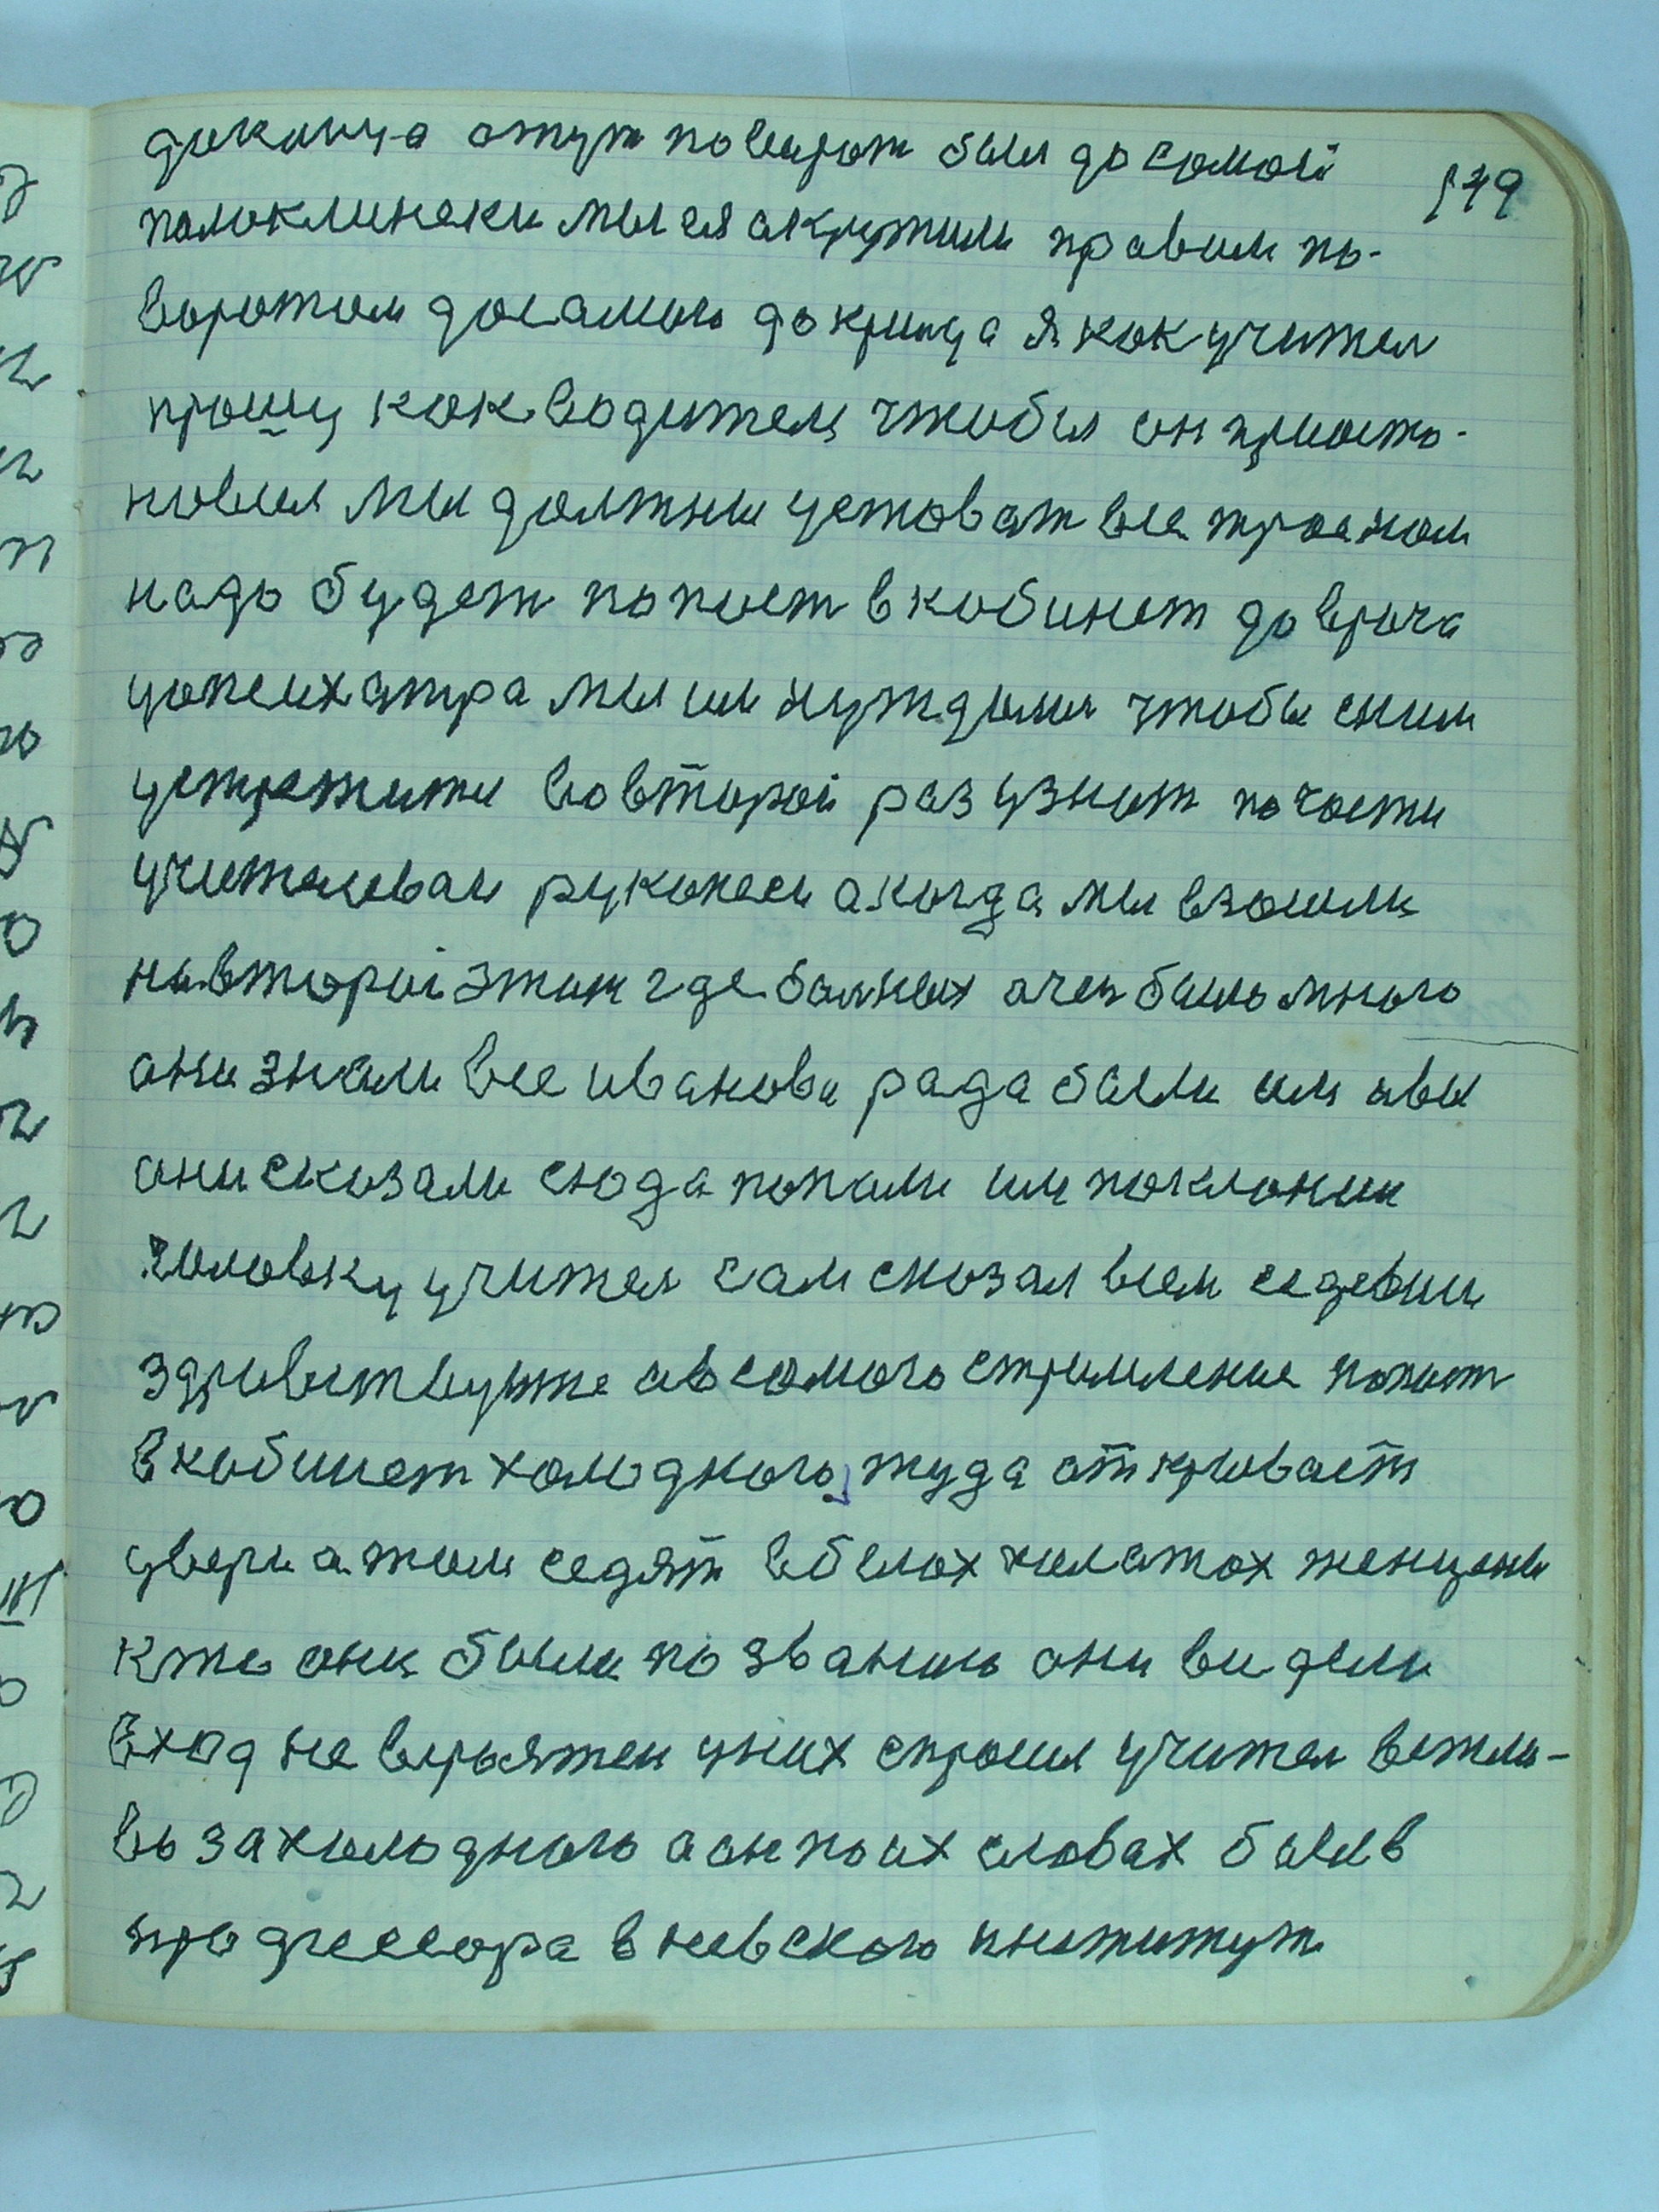 179
доконца отут поворот был до самой
полоклинеки мы ея окружили правим по-
воротом досамого докринца я как учител
прошу как водитель чтобы он приоста-
новил мы должны устават все трое нам
надо будет попаст в кабинет до врача
упсихатра мы им нуждами чтобы сним
устретити вовторой раз узнат почасти
учителеваи рукописи а когда мы взошли
навторой этаж где болных очен было много
они знали все иванова рада были им авы
они сказали сюда попали им поклонил
головку учител сам сказал всем седевши
здравствуйте авсамого стримление попаст
в кабинет холодного, туда открывает
двери атам седят вбелах халатах женщини
кто они были по званию они видели
вход не вероятен уних спросил учител вежли-
во захолодного аон поих словах был в
продфессора в невского институт